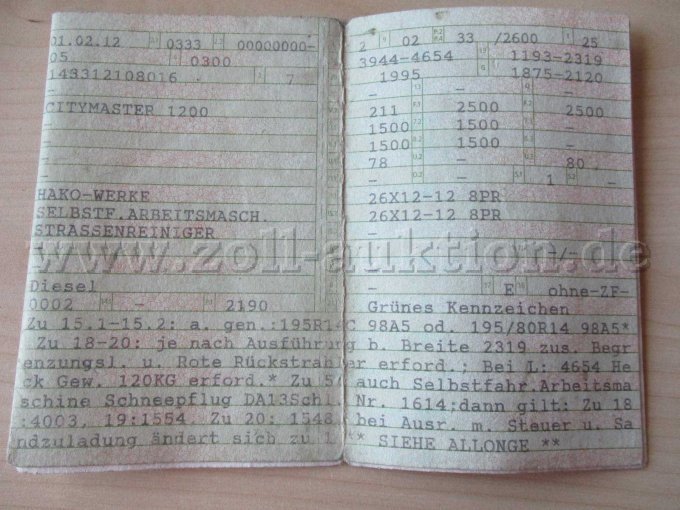 01.02.12 0333 00000000-
05 0300
143312108016 7
-
CITYMASTER 1200
-
-
-
-
HAKO-WERKE
SELBSTF.ARBEITSMASCH.
STRASSENREINIGER
-
Diesel
0002 - 2190
2 02 33 /2600 25
3944-4654 1193-2319
- 1995 1875-2120
- - -
211 2500 2500
1500 1500 -
1500 1500 -
78 - 80
- - 1
26X12-12 8PR
26X12-12 8PR
-
- E ohne-ZF-
Grünes Kennzeichen
Zu 15.1-15.2: a. gen.:195R14C 98A5 od. 195/80R14 98A5*
Zu 18-20: je nach Ausführung b. Breite 2319 zus. Begr
enzungsl. u. Rote Rückstrahler erford.; Bei L: 4654 He
ck Gew. 120KG erford.* Zu 5/ auch Selbstfahr.Arbeitsma
schine Schneepflug DA13Schl. Nr. 1614;dann gilt: Zu 18
:4003, 19:1554. Zu 20: 1548, bei Ausr. m. Steuer u. Sa
ndzuladung ändert sich zu ** SIEHE ALLONGE **
www.zoll-auktion.de